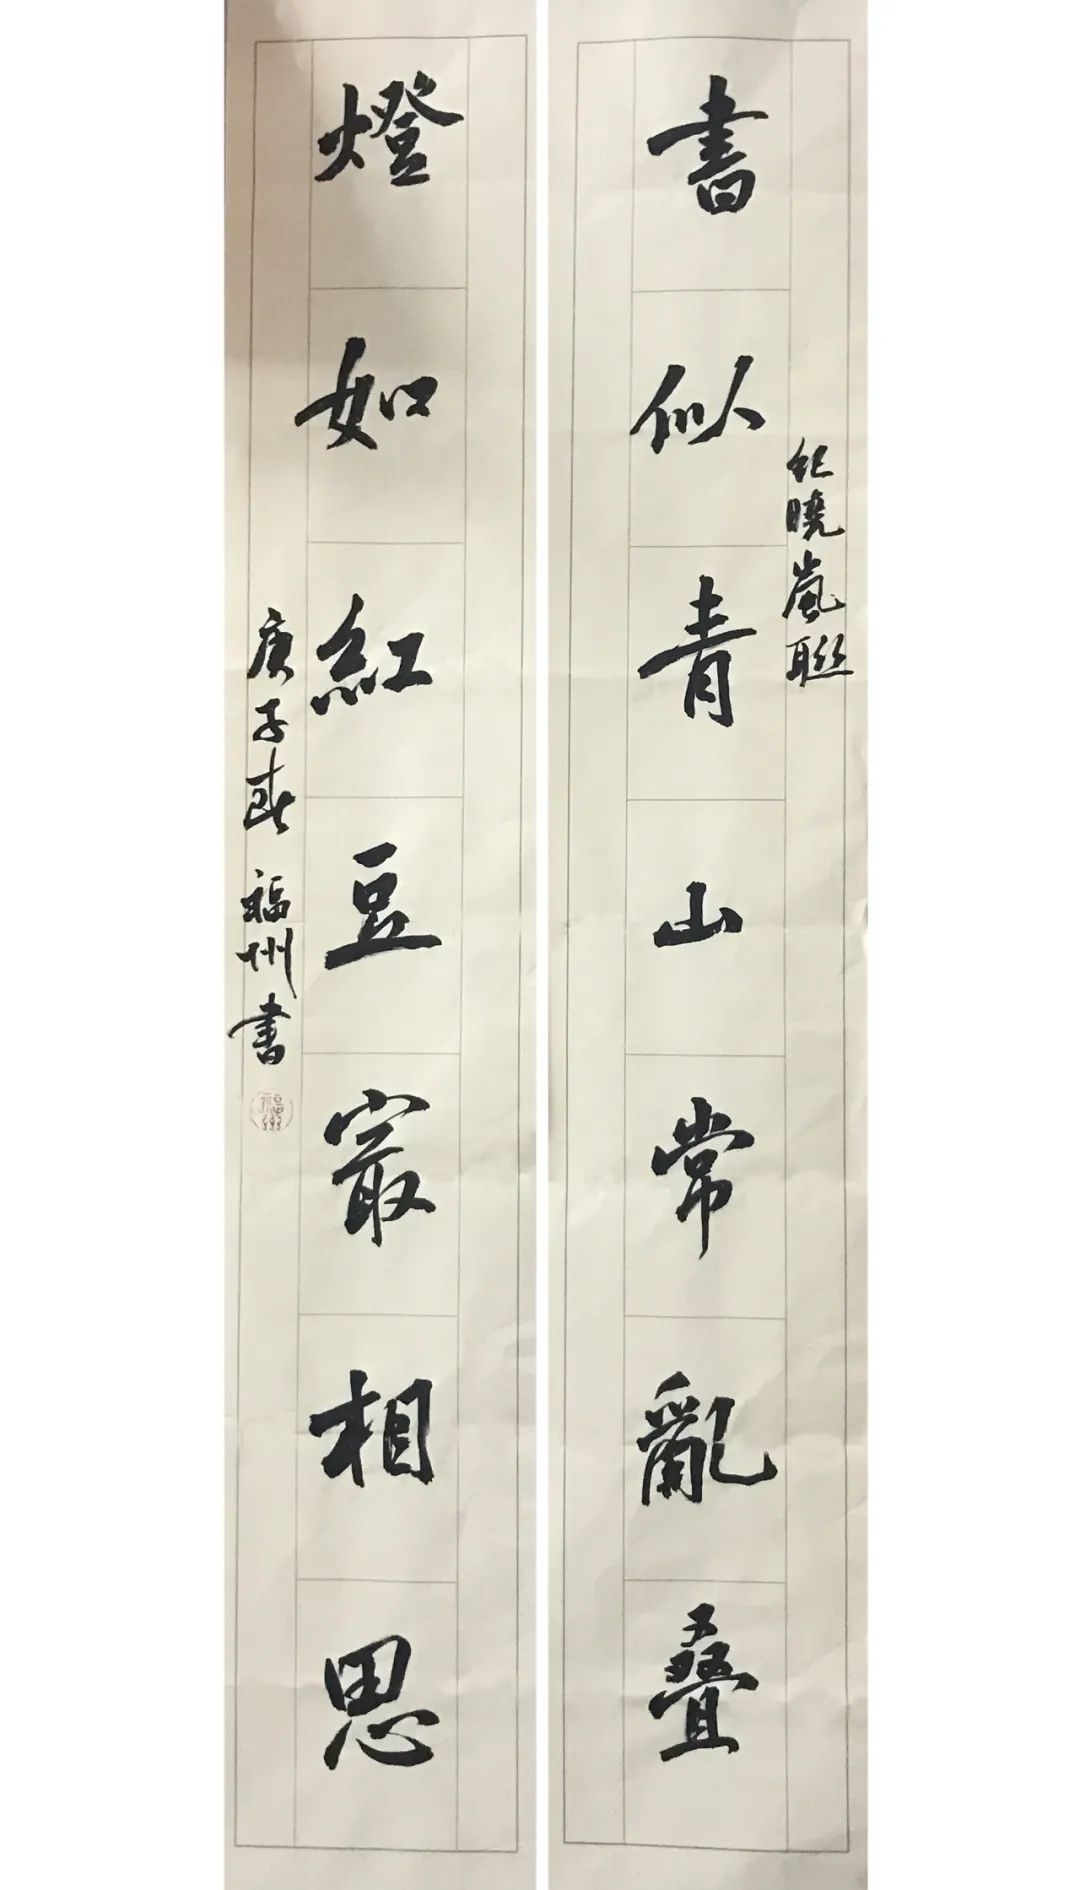 書似青山常亂叠
紀曉嵐聯
燈如紅豆寂相思
庚子春 福州書
福州